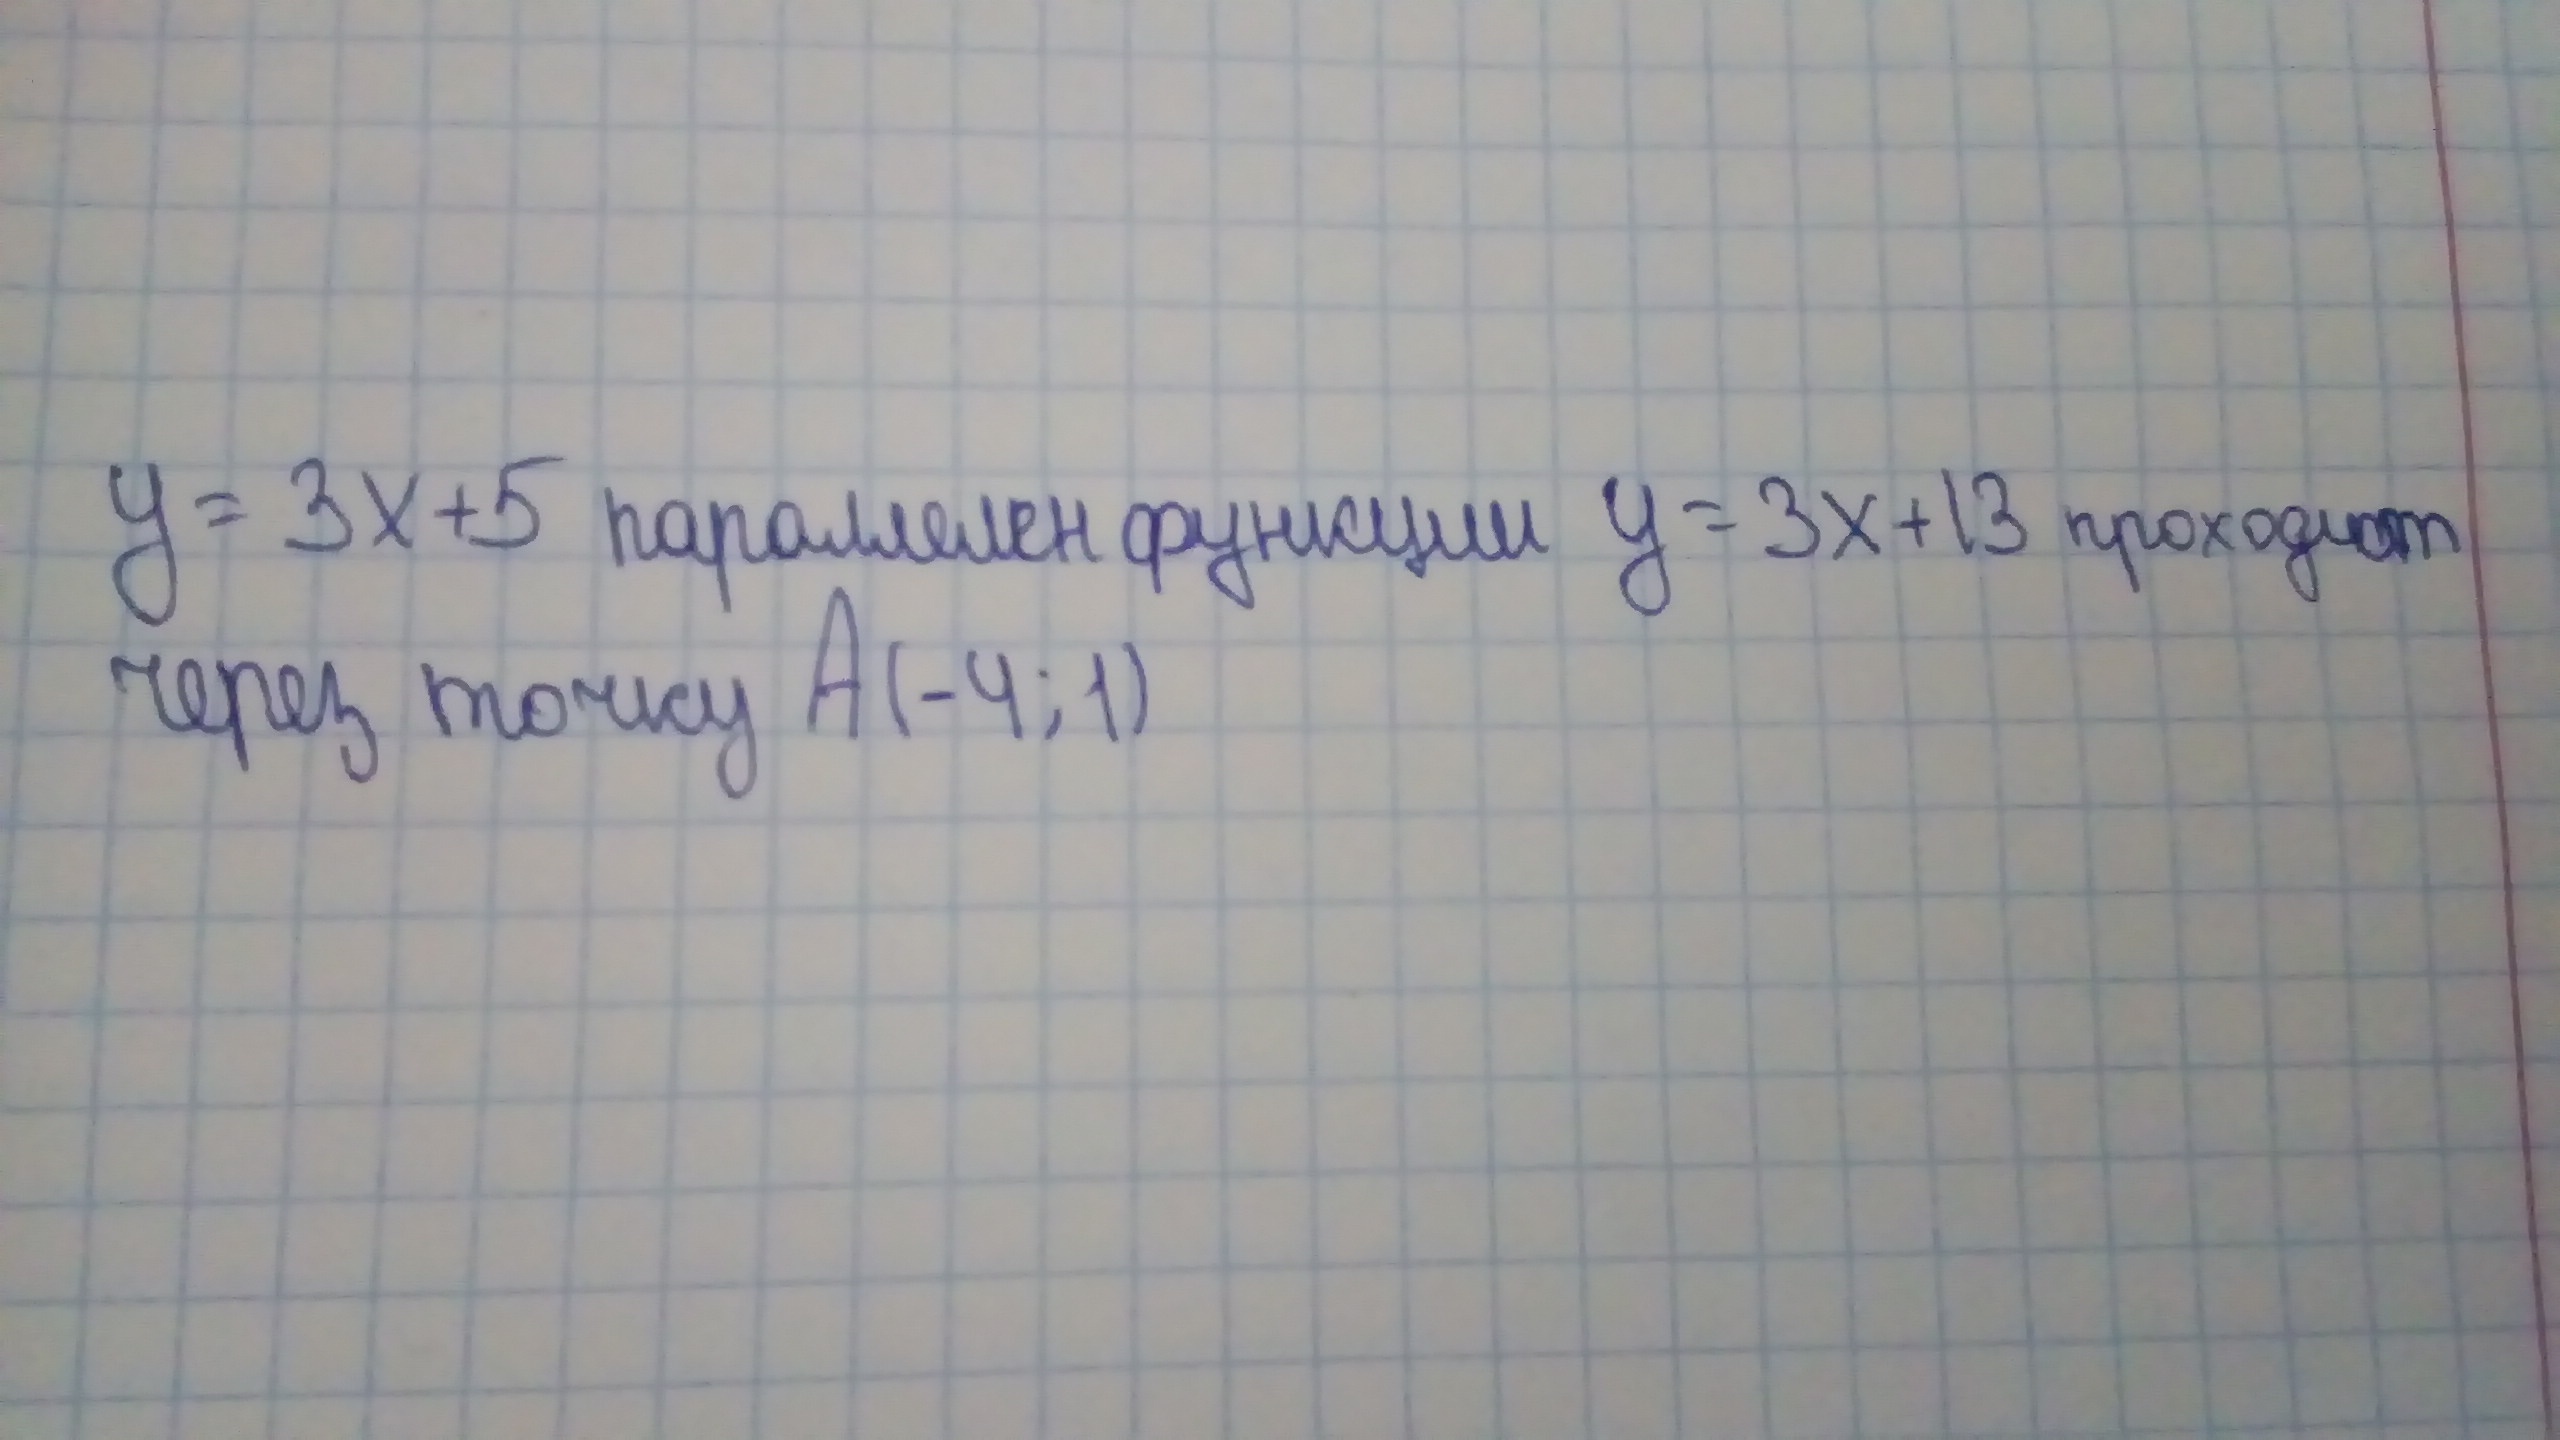 y = 3x+5 параллелен функции y = 3x+13 проходит
через точку A(-4; 1)